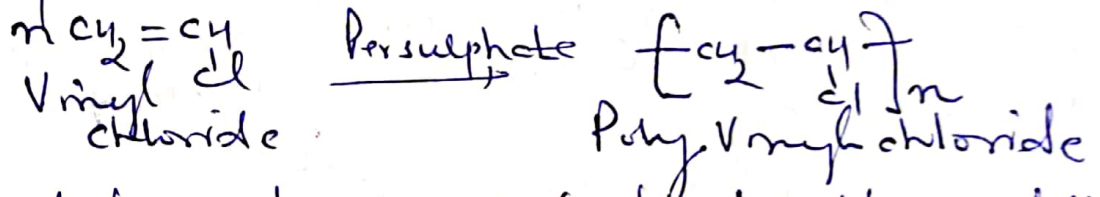 n CH₂ = CH Persulphate [CH₂ — CH]n
Cl Cl
Vinyl chloride Poly Vinyl chloride